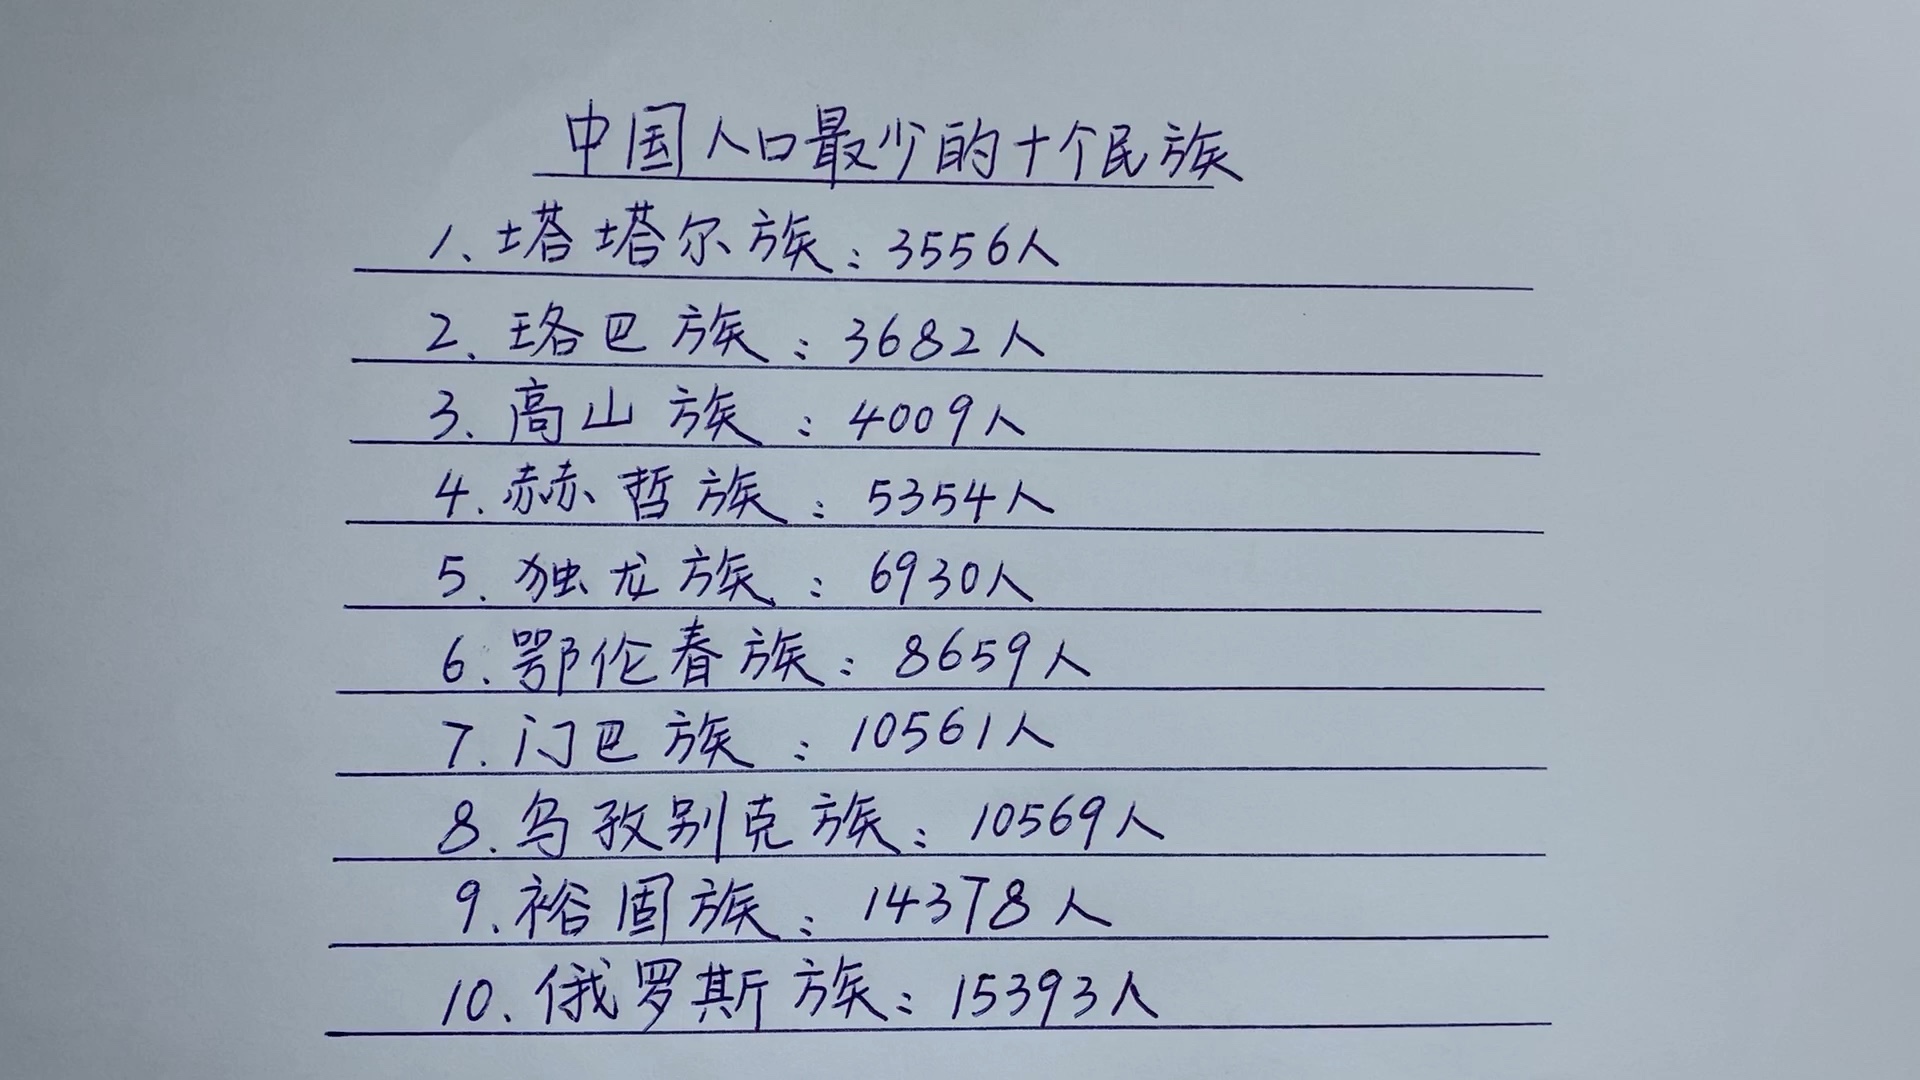 中国人口最少的十个民族
1、塔塔尔族：3556人
2、珞巴族：3682人
3、高山族：4009人
4.赫哲族：5354人
5.独龙族：6930人
6.鄂伦春族：8659人
7.门巴族：10561人
8.乌孜别克族：10569人
9.裕固族：14378人
10.俄罗斯族：15393人